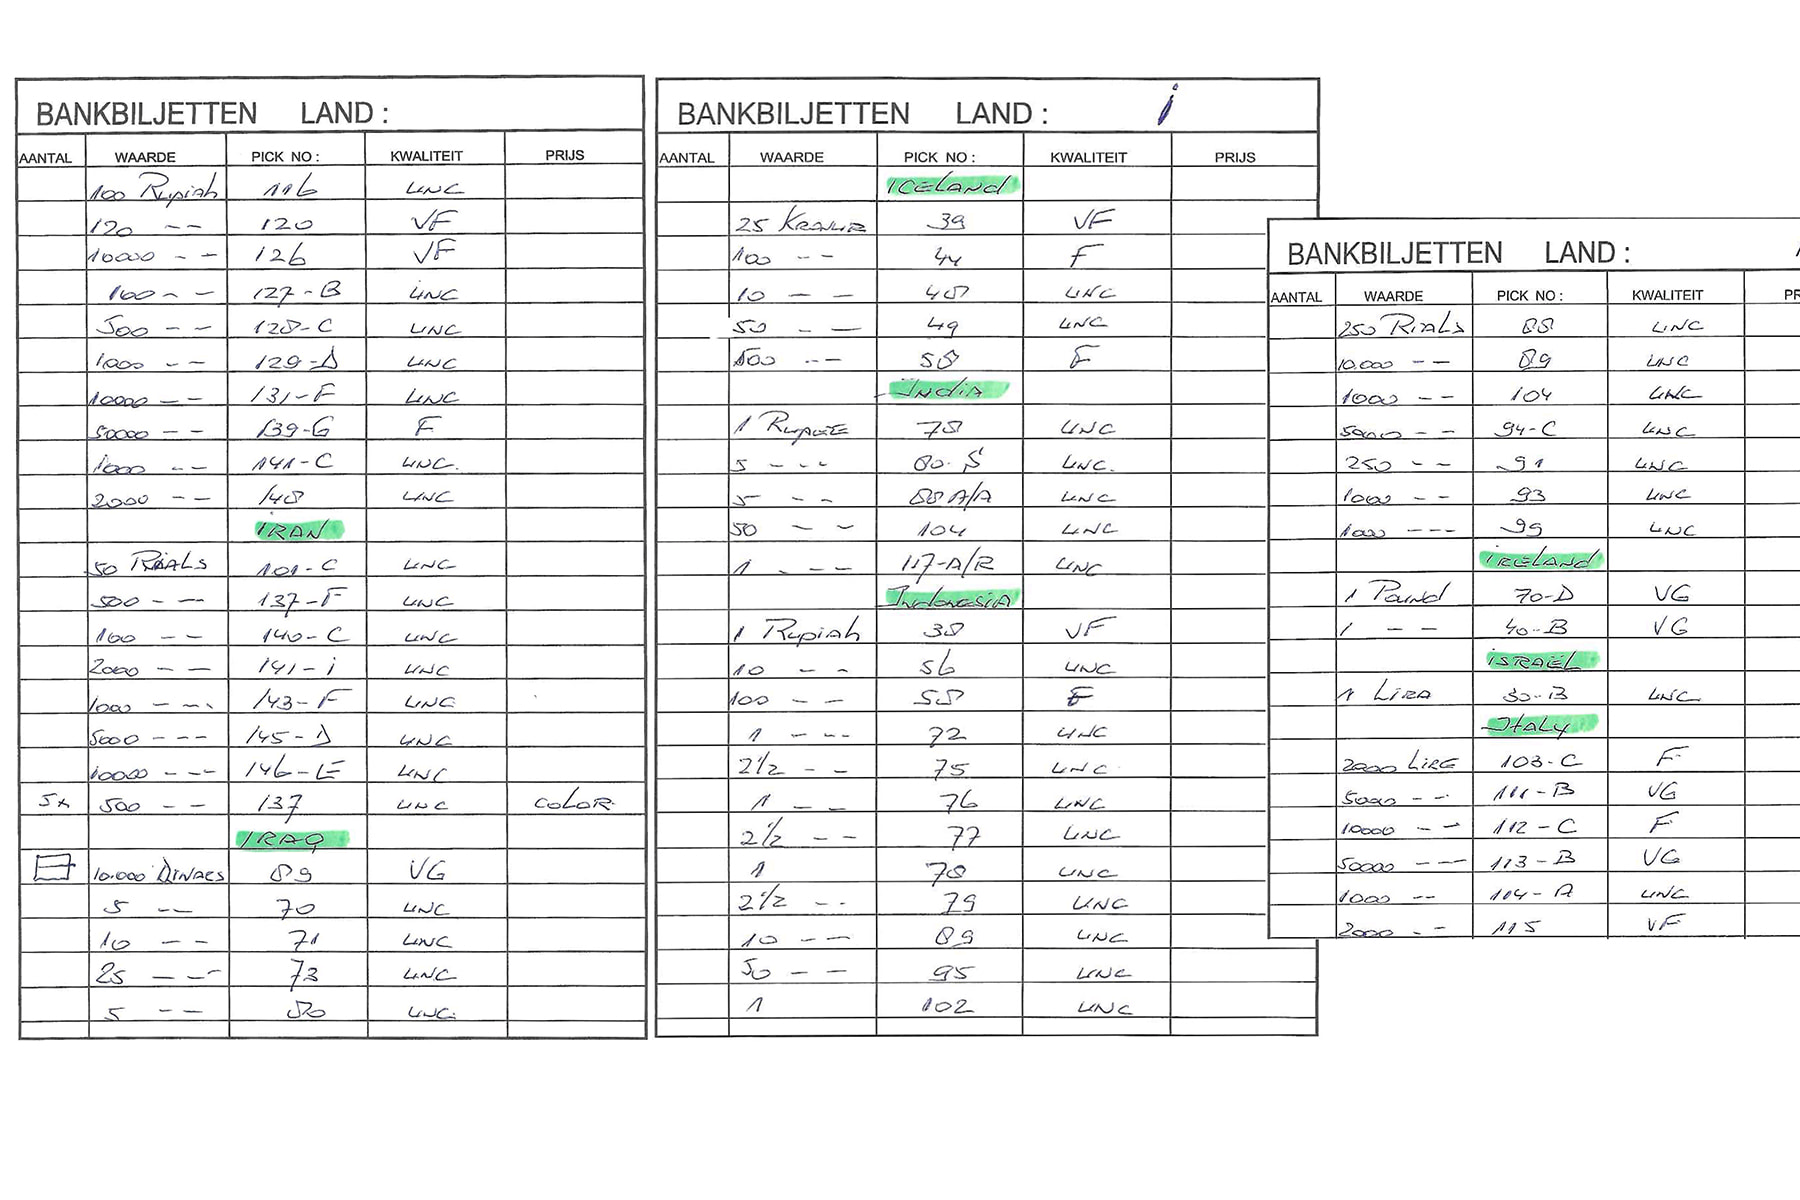 BANKBILJETTEN LAND :
AANTAL WAARDE PICK NO : KWALITEIT PRIJS
100 Rupiah 116 UNC
120 -- 120 VF
10000 -- 126 VF
100 -- 127-B UNC
500 -- 128-C UNC
1000 -- 129-D UNC
10000 -- 131-F UNC
50000 -- 139-G F
1000 -- 141-C UNC.
2000 -- 148 UNC
IRAN
50 RIALS 101-C UNC
500 -- 137-F UNC
100 -- 140-C UNC
2000 -- 141-i UNC
1000 --- 143-F UNC
5000 --- 145-D UNC
10000 --- 146-E UNC
5x 500 -- 137 UNC COLOR
IRAQ
10.000 DINARS 89 VG
5 -- 70 UNC
10 -- 71 UNC
25 --- 73 UNC
5 -- 80 UNC
BANKBILJETTEN LAND : i
AANTAL WAARDE PICK NO : KWALITEIT PRIJS
ICELAND
25 KRONUR 39 VF
100 -- 44 F
10 -- 48 UNC
50 -- 49 UNC
500 -- 58 F
INDIA
1 RUPEE 78 UNC
5 --- 80-S UNC.
5 -- 88 A/A UNC
50 -- 104 UNC
1 --- 117-A/R UNC
INDONESIA
1 Rupiah 38 VF
10 -- 56 UNC
100 -- 58 F
1 --- 72 UNC
2 1/2 -- 75 UNC
1 -- 76 UNC
2 1/2 -- 77 UNC
1 78 UNC
2 1/2 -- 79 UNC
10 -- 89 UNC
50 -- 95 UNC
1 102 UNC
BANKBILJETTEN LAND :
AANTAL WAARDE PICK NO : KWALITEIT PR
250 RIALS 88 UNC
10.000 -- 89 UNC
1000 -- 104 UNC
5000 -- 94-C UNC
250 -- 91 UNC
1000 -- 93 UNC
1000 --- 99 UNC
IRELAND
1 Pound 70-D VG
1 -- 40-B VG
ISRAËL
1 LIRA 30-B UNC
ITALY
2000 LIRE 103-C F
5000 -- 111-B VG
10000 -- 112-C F
50000 --- 113-B VG
1000 -- 114-A UNC
2000 -- 115 VF